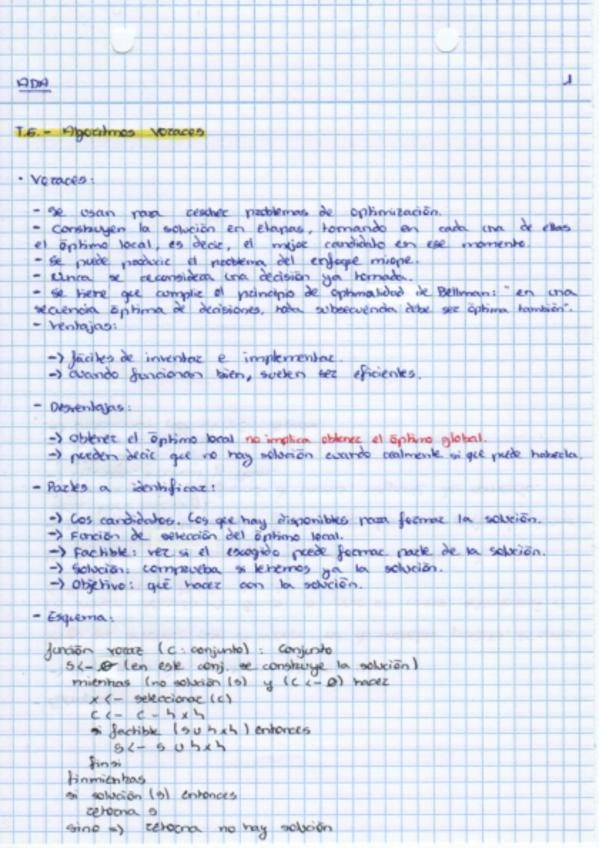 ADA
1
T.6.- Algoritmos voraces
· Voraces:
- Se usan para resolver problemas de optimización.
- Construyen la solución en etapas, tomando en cada una de ellas
el óptimo local, es decir, el mejor candidato en ese momento.
- Se puede producir el problema del enfoque miope.
- Nunca se reconsidera una decisión ya tomada.
- Se tiene que cumplir el principio de optimalidad de Bellman: "en una
secuencia óptima de decisiones, toda subsecuencia debe ser óptima también".
- Ventajas:
-> fáciles de inventar e implementar.
-> cuando funcionan bien, suelen ser eficientes.
- Desventajas:
-> Obtener el óptimo local no implica obtener el óptimo global.
-> pueden decir que no hay solución cuando realmente si que puede haberla.
- Partes a identificar:
-> Los candidatos. Los que hay disponibles para formar la solución.
-> Función de selección del óptimo local.
-> Factible: ver si el escogido puede formar parte de la solución.
-> Solución: comprueba si tenemos ya la solución.
-> Objetivo: qué hacer con la solución.
- Esquema:
función voraz (c: conjunto): conjunto
s <- ∅ (en este conj. se construye la solución)
mientras (no solución (s) y (c <- ∅) hacer
x <- seleccionar (c)
c <- c - {x}
si factible (s ∪ {x}) entonces
s <- s ∪ {x}
finsi
finmientras
si solución (s) entonces
retorna s
sino => retorna no hay solución